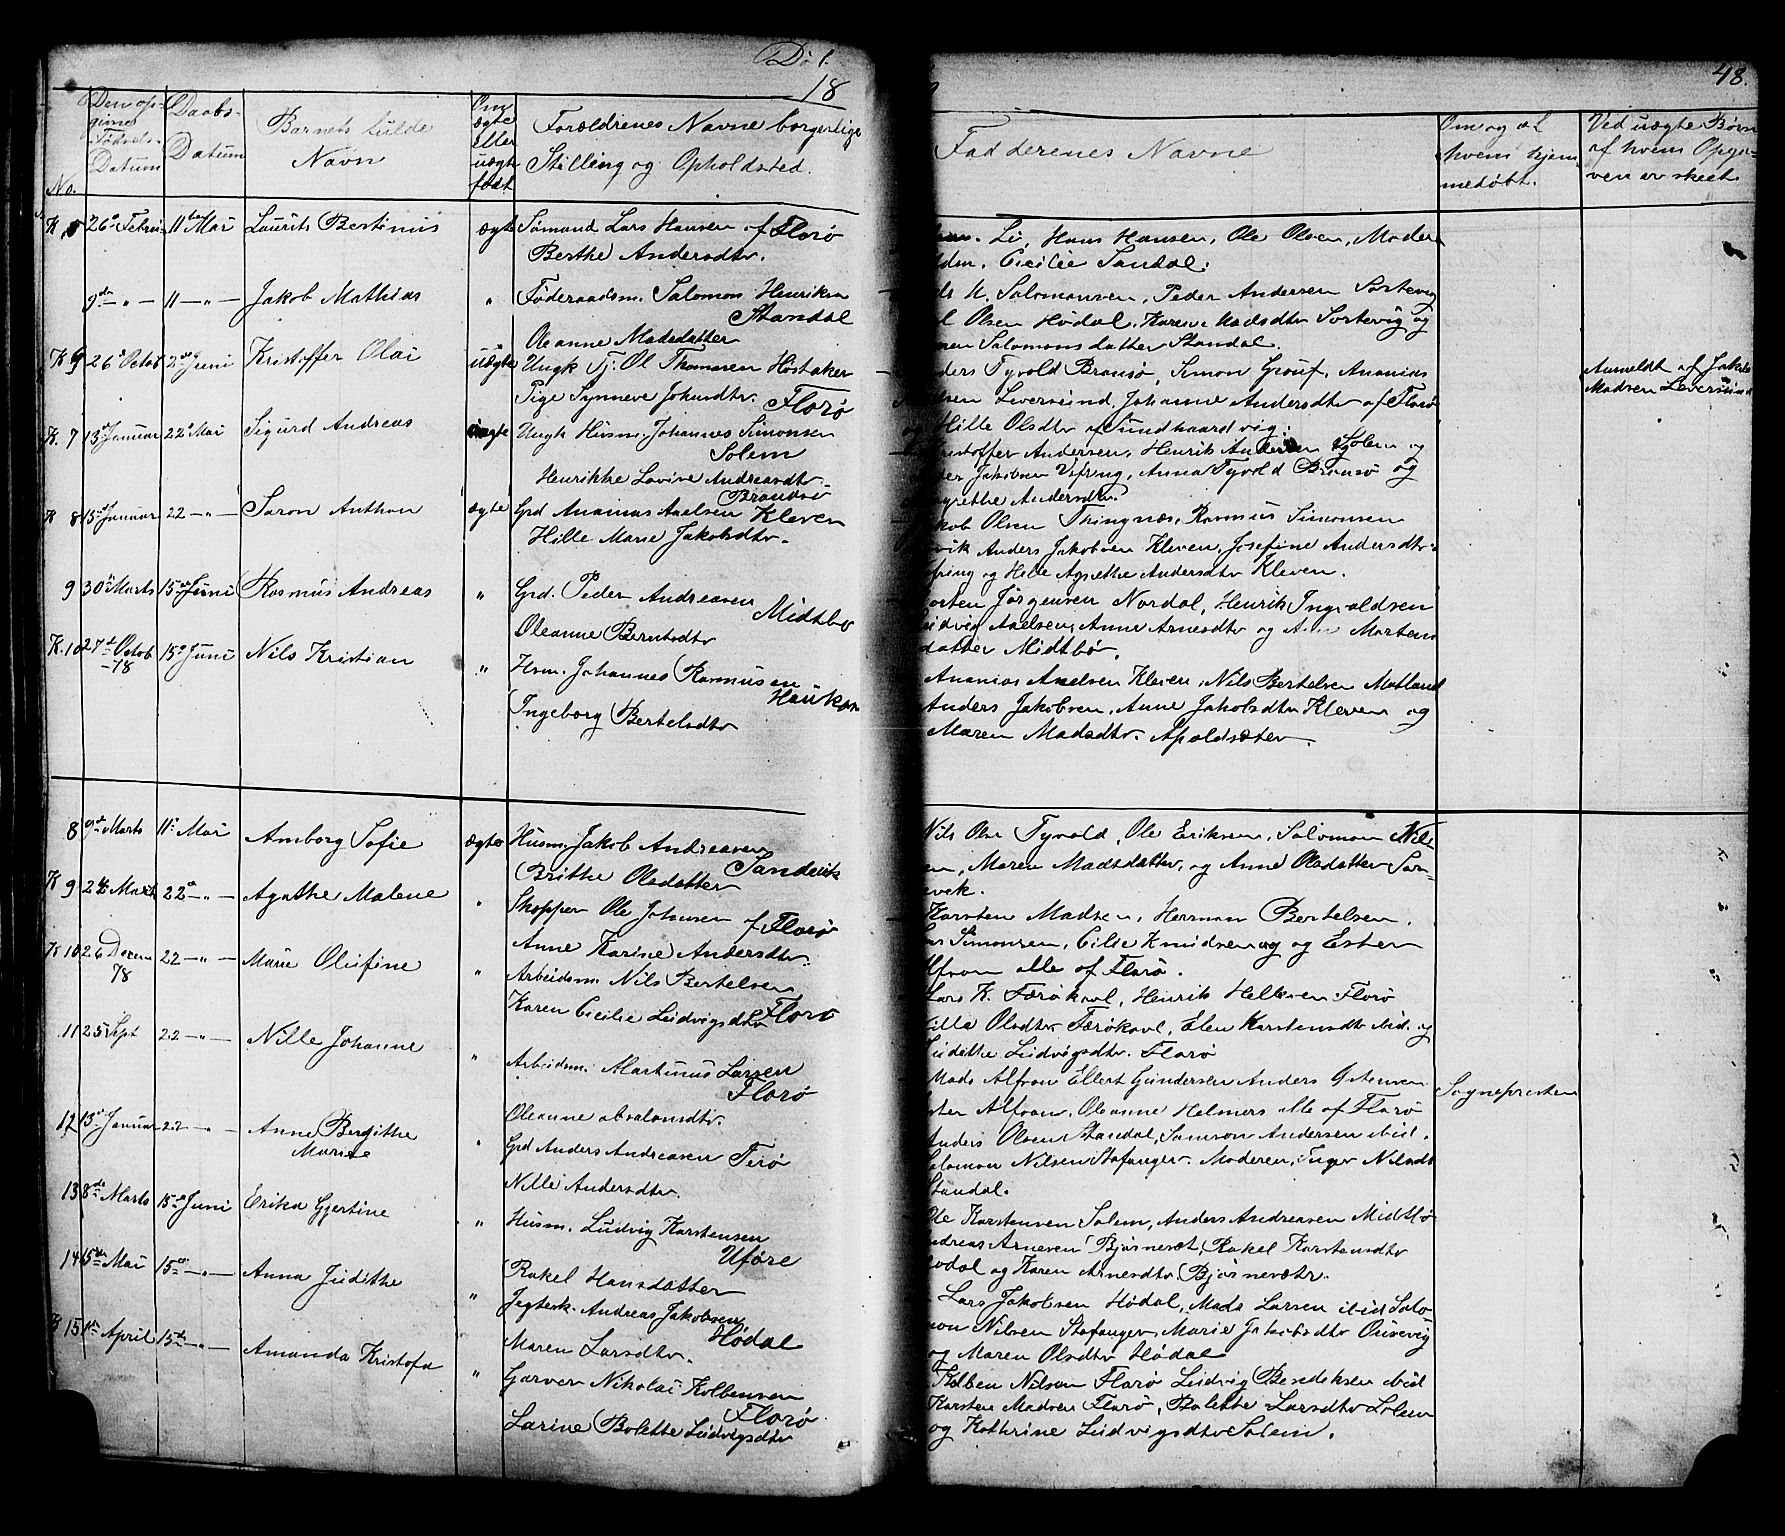 Dø
18
48.
No.
Den op-
givne
Fødsels-
Datum
Daabs-
Datum
Barnets fulde
Navn
Om
ægte
eller
uægte
født
Forældrenes Navne borgerlige
Stilling og Opholdsted.
Fadderenes Navne
Om og af
hvem hjem-
medøbt.
Ved uægte Børn
af hvem Opga-
ven er skeet
K 26 Februar 11 Mai Laurits Bertinius ægte Sømand Lars Hansen af Florø
Berthe Andersdtr.
Li, Hans Hansen, Ole Olsen, Moder
Cicilie Sandal.
9de — " — 11 — " — Jakob Mathias " Føderaadsm. Salomon Henriksen
Standal
Oleanne Madsdatter
N. Salomonsen, Peder Andersen Sortevig
Olsen Hødal, Karen Madsdtr Sortevig og
Salomonsdatter Standal.
K 26 Octob 2den Juni Kristoffer Olai uægte Ungk Tj. Ol Thomasen Høstaker
Pige Synneve Johansdtr. Florø
Tyvold Bransø, Simon Grouf, Ananias
Leversund, Johanne Andersdtr af Florø
Hille Olsdtr af Sundhaardvig.
Anmeldt af Jakob
Madsen Leversund
K. 7 13 Januar 22 Mai Sigurd Andreas Ungk Husm. Johannes Simonsen
Solem
Henrikke Lovise Andreasdtr.
Brandsø
Andersen, Henrik Andersen Solem og
Jakobsen Vefring, Anna Tyvold Bransø og
Andersdtr.
K 8 15 Januar 22 — " — Saron Anthon ægte Grd Ananias Axelsen Kleven
Hille Marie Jakobsdtr.
Olsen Thingnæs, Rasmus Simonsen
Anders Jakobsen Kleven, Josefine Andersdtr
og Hille Agrethe Andersdtr Kleven.
9 30 Marts 15de Juni Rasmus Andreas " Grd. Peder Andreasen
Midtbø
Oleanne Berntsdtr
Jørgensen Nordal, Henrik Ingvaldsen
Axelsen, Anne Arnesdtr og Martens
datter Midtbø.
K. 10 27de Octob
-78 15 Juni Nils Kristian " Hsm. Johannes Rasmusen
Haukaa
Ingeborg Bertelsdtr
Ananias Axelsen Kleven, Nils Bertelsen Matland
Anders Jakobsen, Anne Jakobsdtr Kleven og
Maren Madsdtr. Apoldsæter.
8 9de Marts 11 Mai Amborg Sofie ægte Husm. Jakob Andreasen
Sandvik
Brithe Olsdatter
Nils Olsen Tyvold, Ole Eriksen, Salomon Nils-
en, Maren Madtdatter, og Anne Olsdatter San-
evek.
K 9 24 Marts 22 — " — Agathe Malene " Skopper Ole Johnsen af Florø
Anne Karine Andersdtr.
Karsten Madsen, Herman Bertelsen,
Simonsen, Cilie Knudsen og Ester
Alfson alle af Florø.
K 10 26 Decem
78 22 — " — Marie Olufine " Arbeidsm. Nils Bertelsen
Karen Cicilie Ludvigsdtr Florø
Lars K. Færøkavl, Henrik Hellesen Florø
Olsdtr Færøkavl, Elen Karstensdtr ibid. og
Judithe Ludvigsdtr. Florø
11 25 Sept 22 — " — Nille Johanne " Arbeidsm. Martinus Larsen
Florø
Oleanne Absalonsdtr.
Mads Alfson Ellert Gundersen Anders
Alfson, Oleanne Helmers alle af Florø
Sognepresten
12 13 Januar 22 — " — Anne Bergithe
Marie " Grd Anders Andreasen Terø
Nille Andersdtr.
Anders Olsen Standal, Samson Andersen ibid.
Salomon Nilsen Stafanger. Moderen, Inger Nilsdtr
Standal.
13 8de Marts 15 Juni Erika Gjertine " Husm. Ludvig Karstensen
Uføre
Rakel Hansdatter
Ole Karstensen Solem, Anders Andreasen Midtbø
Andreas Arnesen Bjørnesæt, Rakel Karstensdtr
og Karen Arnesdtr. Bjørnesætr.
14 15de Mai 15 — " — Anna Judithe " Jegtesk. Andreas Jakobsen
Hødal
Maren Larsdtr.
Lars Jakobsen Hødal, Mads Larsen ibid Salo-
mon Nilsen Stafanger, Marie Jakobsdtr Ousevig
og Maren Olsdtr Hødal
K 15 1ste April 15de — " — Amanda Kristofa " Garver Nikolai Kolbensen
Florø
Larine Bolette Ludvigsdtr
Kolben Nilsen Florø Ludvig Bendiksen ibid
Karsten Madsen Florø, Bolette Larsdtr Solem
og Kathrine Ludvigsdtr Solem.